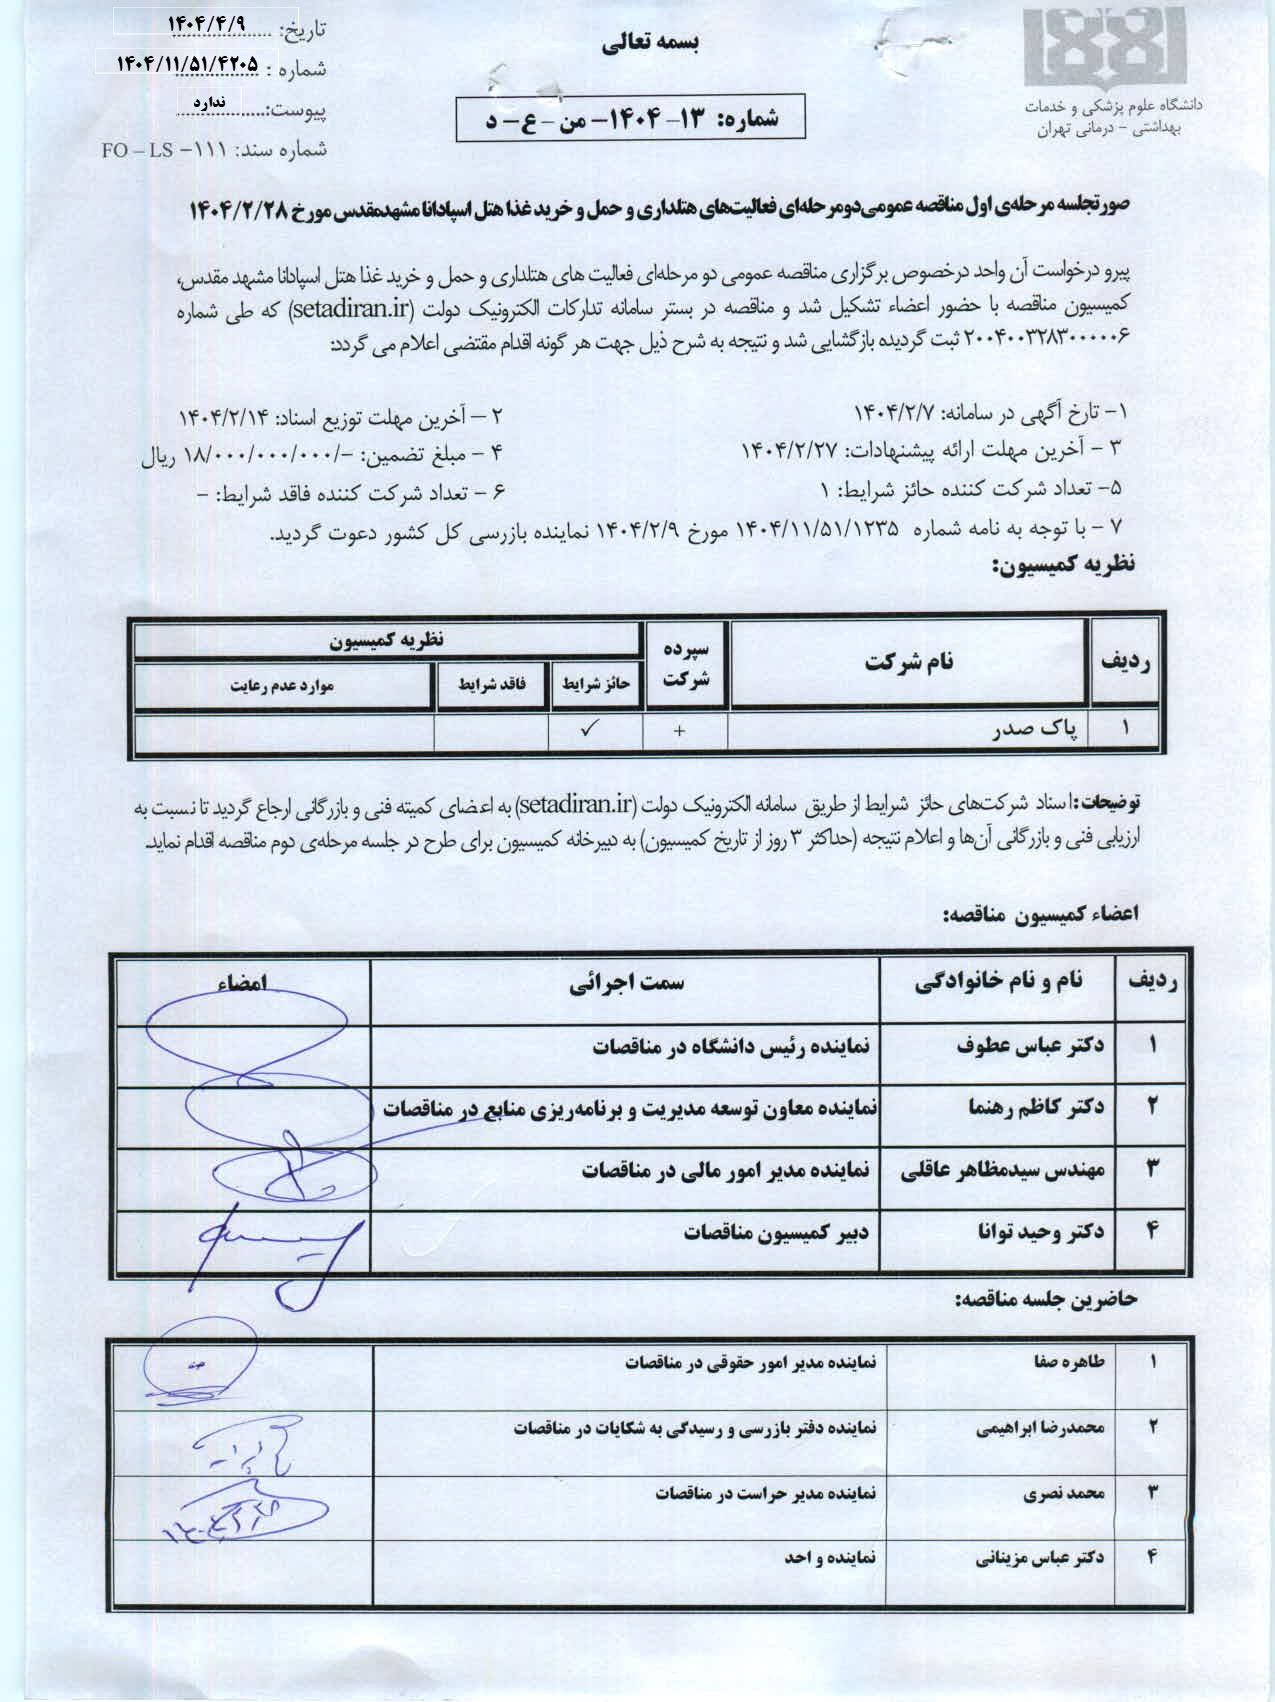 بسمه تعالی
دانشگاه علوم پزشکی و خدمات
بهداشتی – درمانی تهران
تاریخ: ۱۴۰۴/۴/۹
شماره : ۱۴۰۴/۱۱/۵۱/۴۲۰۵
پیوست: ندارد
شماره سند: FO – LS –۱۱۱
شماره: ۱۳- ۱۴۰۴- من – ع- د
صورتجلسه مرحله‌ی اول مناقصه عمومی‌دومرحله‌ای فعالیت‌های هتلداری و حمل و خرید غذا هتل اسپادانا مشهدمقدس مورخ ۱۴۰۴/۲/۲۸
پیرو درخواست آن واحد درخصوص برگزاری مناقصه عمومی دو مرحله‌ای فعالیت های هتلداری و حمل و خرید غذا هتل اسپادانا مشهد مقدس،
کمیسیون مناقصه با حضور اعضاء تشکیل شد و مناقصه در بستر سامانه تدارکات الکترونیک دولت (setadiran.ir) که طی شماره
۲۰۰۴۰۰۳۲۸۳۰۰۰۰۰۶ ثبت گردیده بازگشایی شد و نتیجه به شرح ذیل جهت هر گونه اقدام مقتضی اعلام می گردد:
۱- تارخ آگهی در سامانه: ۱۴۰۴/۲/۷
۲ – آخرین مهلت توزیع اسناد: ۱۴۰۴/۲/۱۴
۳ – آخرین مهلت ارائه پیشنهادات: ۱۴۰۴/۲/۲۷
۴ – مبلغ تضمین: -/۱۸/۰۰۰/۰۰۰/۰۰۰ ریال
۵- تعداد شرکت کننده حائز شرایط: ۱
۶ – تعداد شرکت کننده فاقد شرایط: –
۷ – با توجه به نامه شماره ۱۴۰۴/۱۱/۵۱/۱۲۳۵ مورخ ۱۴۰۴/۲/۹ نماینده بازرسی کل کشور دعوت گردید.
نظریه کمیسیون:
ردیف نام شرکت سپرده شرکت نظریه کمیسیون
حائز شرایط فاقد شرایط موارد عدم رعایت
۱ پاک صدر + ✓
توضیحات: اسناد شرکت‌های حائز شرایط از طریق سامانه الکترونیک دولت (setadiran.ir) به اعضای کمیته فنی و بازرگانی ارجاع گردید تا نسبت به
ارزیابی فنی و بازرگانی آن‌ها و اعلام نتیجه (حداکثر ۳ روز از تاریخ کمیسیون) به دبیرخانه کمیسیون برای طرح در جلسه مرحله‌ی دوم مناقصه اقدام نماید.
اعضاء کمیسیون مناقصه:
ردیف نام و نام خانوادگی سمت اجرائی امضاء
۱ دکتر عباس عطوف نماینده رئیس دانشگاه در مناقصات
۲ دکتر کاظم رهنما نماینده معاون توسعه مدیریت و برنامه‌ریزی منابع در مناقصات
۳ مهندس سیدمظاهر عاقلی نماینده مدیر امور مالی در مناقصات
۴ دکتر وحید توانا دبیر کمیسیون مناقصات
حاضرین جلسه مناقصه:
۱ طاهره صفا نماینده مدیر امور حقوقی در مناقصات
۲ محمدرضا ابراهیمی نماینده دفتر بازرسی و رسیدگی به شکایات در مناقصات
۳ محمد نصری نماینده مدیر حراست در مناقصات
۴ دکتر عباس مزینانی نماینده و احد